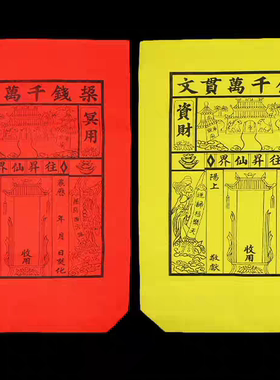 槡錢千萬
冥用
往昇仙界
年 月 日焚化
收用
千萬貫文
資財
往昇仙界
陽上 敬獻
收用